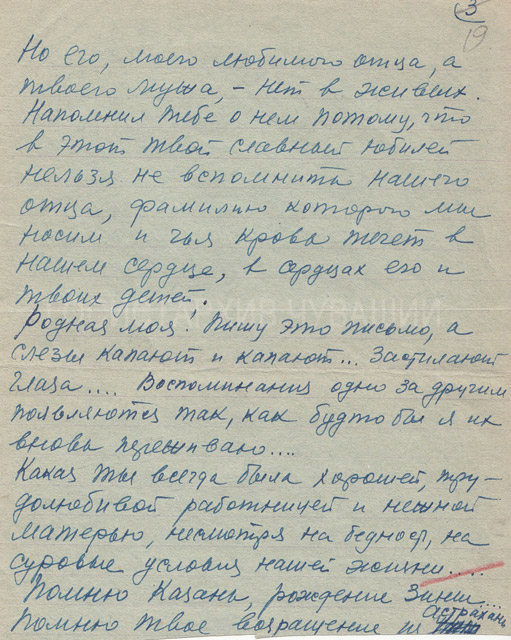 3
19
Но его, моего любимого отца, а
твоего мужа, – нет в живых.
Напомнил тебе о нем потому, что
в этот твой славный юбилей
нельзя не вспомнить нашего
отца, фамилию которого мы
носим и чья кровь течет в
нашем сердце, в сердцах его и
твоих детей.
Родная моя! Пишу это письмо, а
слезы капают и капают... Застилают
глаза.... Воспоминания одно за другим
появляются так, как будто бы я их
вновь переживаю....
Какая ты всегда была хорошей, тру-
долюбивой работницей и нежной
матерью, несмотря на бедность, на
суровые условия нашей жизни.....
Помню Казань, рождение Зины...
Астрахань
Помню твое возращение из